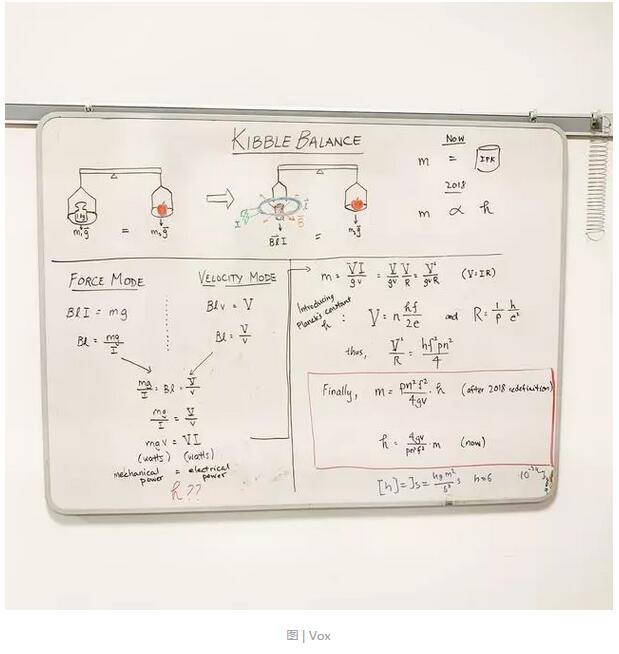 KIBBLE BALANCE
NOW
m = IPK
2018
m ∝ h
1kg
m₁g = m₂g
I
BlI = m₂g
FORCE MODE
BlI = mg
Bl = mg/I
VELOCITY MODE
Blv = V
Bl = V/v
mg/I = Bl = V/v
mg/I = V/v
mgv = VI
(watts) (watts)
mechanical power = electrical power
h??
m = VI/gv = V/gv V/R = V²/gvR (V=IR)
Introducing
Planck's constant
h : V = n hf/2e and R = 1/p h/e²
thus, V²/R = hf²pn²/4
Finally, m = pn²f²/4gv · h (after 2018 redefinition)
h = 4gv/pn²f² · m (now)
[h] = Js = kg m²/s² s h=6
图 | Vox